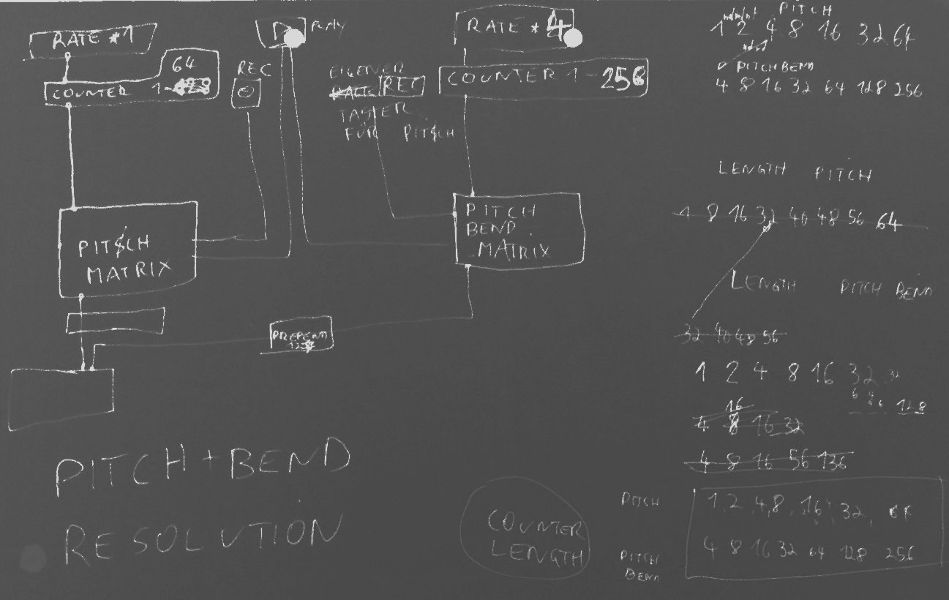 RATE *1
64
COUNTER 1-128
REC
PLAY
RATE *4
COUNTER 1-256
EIGENER
REC
TASTER
FÜR PITCH
PITCH
MATRIX
PITCH
BEND
MATRIX
PREPEND
PITCH + BEND
RESOLUTION
PITCH
1 2 4 8 16 32 64
PITCHBEND
4 8 16 32 64 128 256
LENGTH PITCH
1 8 16 32 40 48 56 64
LENGTH PITCH BEND
32 40 48 56
1 2 4 8 16 32 32
128
16
4 8 16 32
4 8 16 56 136
COUNTER
LENGTH
PITCH
1, 2, 4, 8, 16, 32,
PITCH
BEND
4 8 16 32 64 128 256